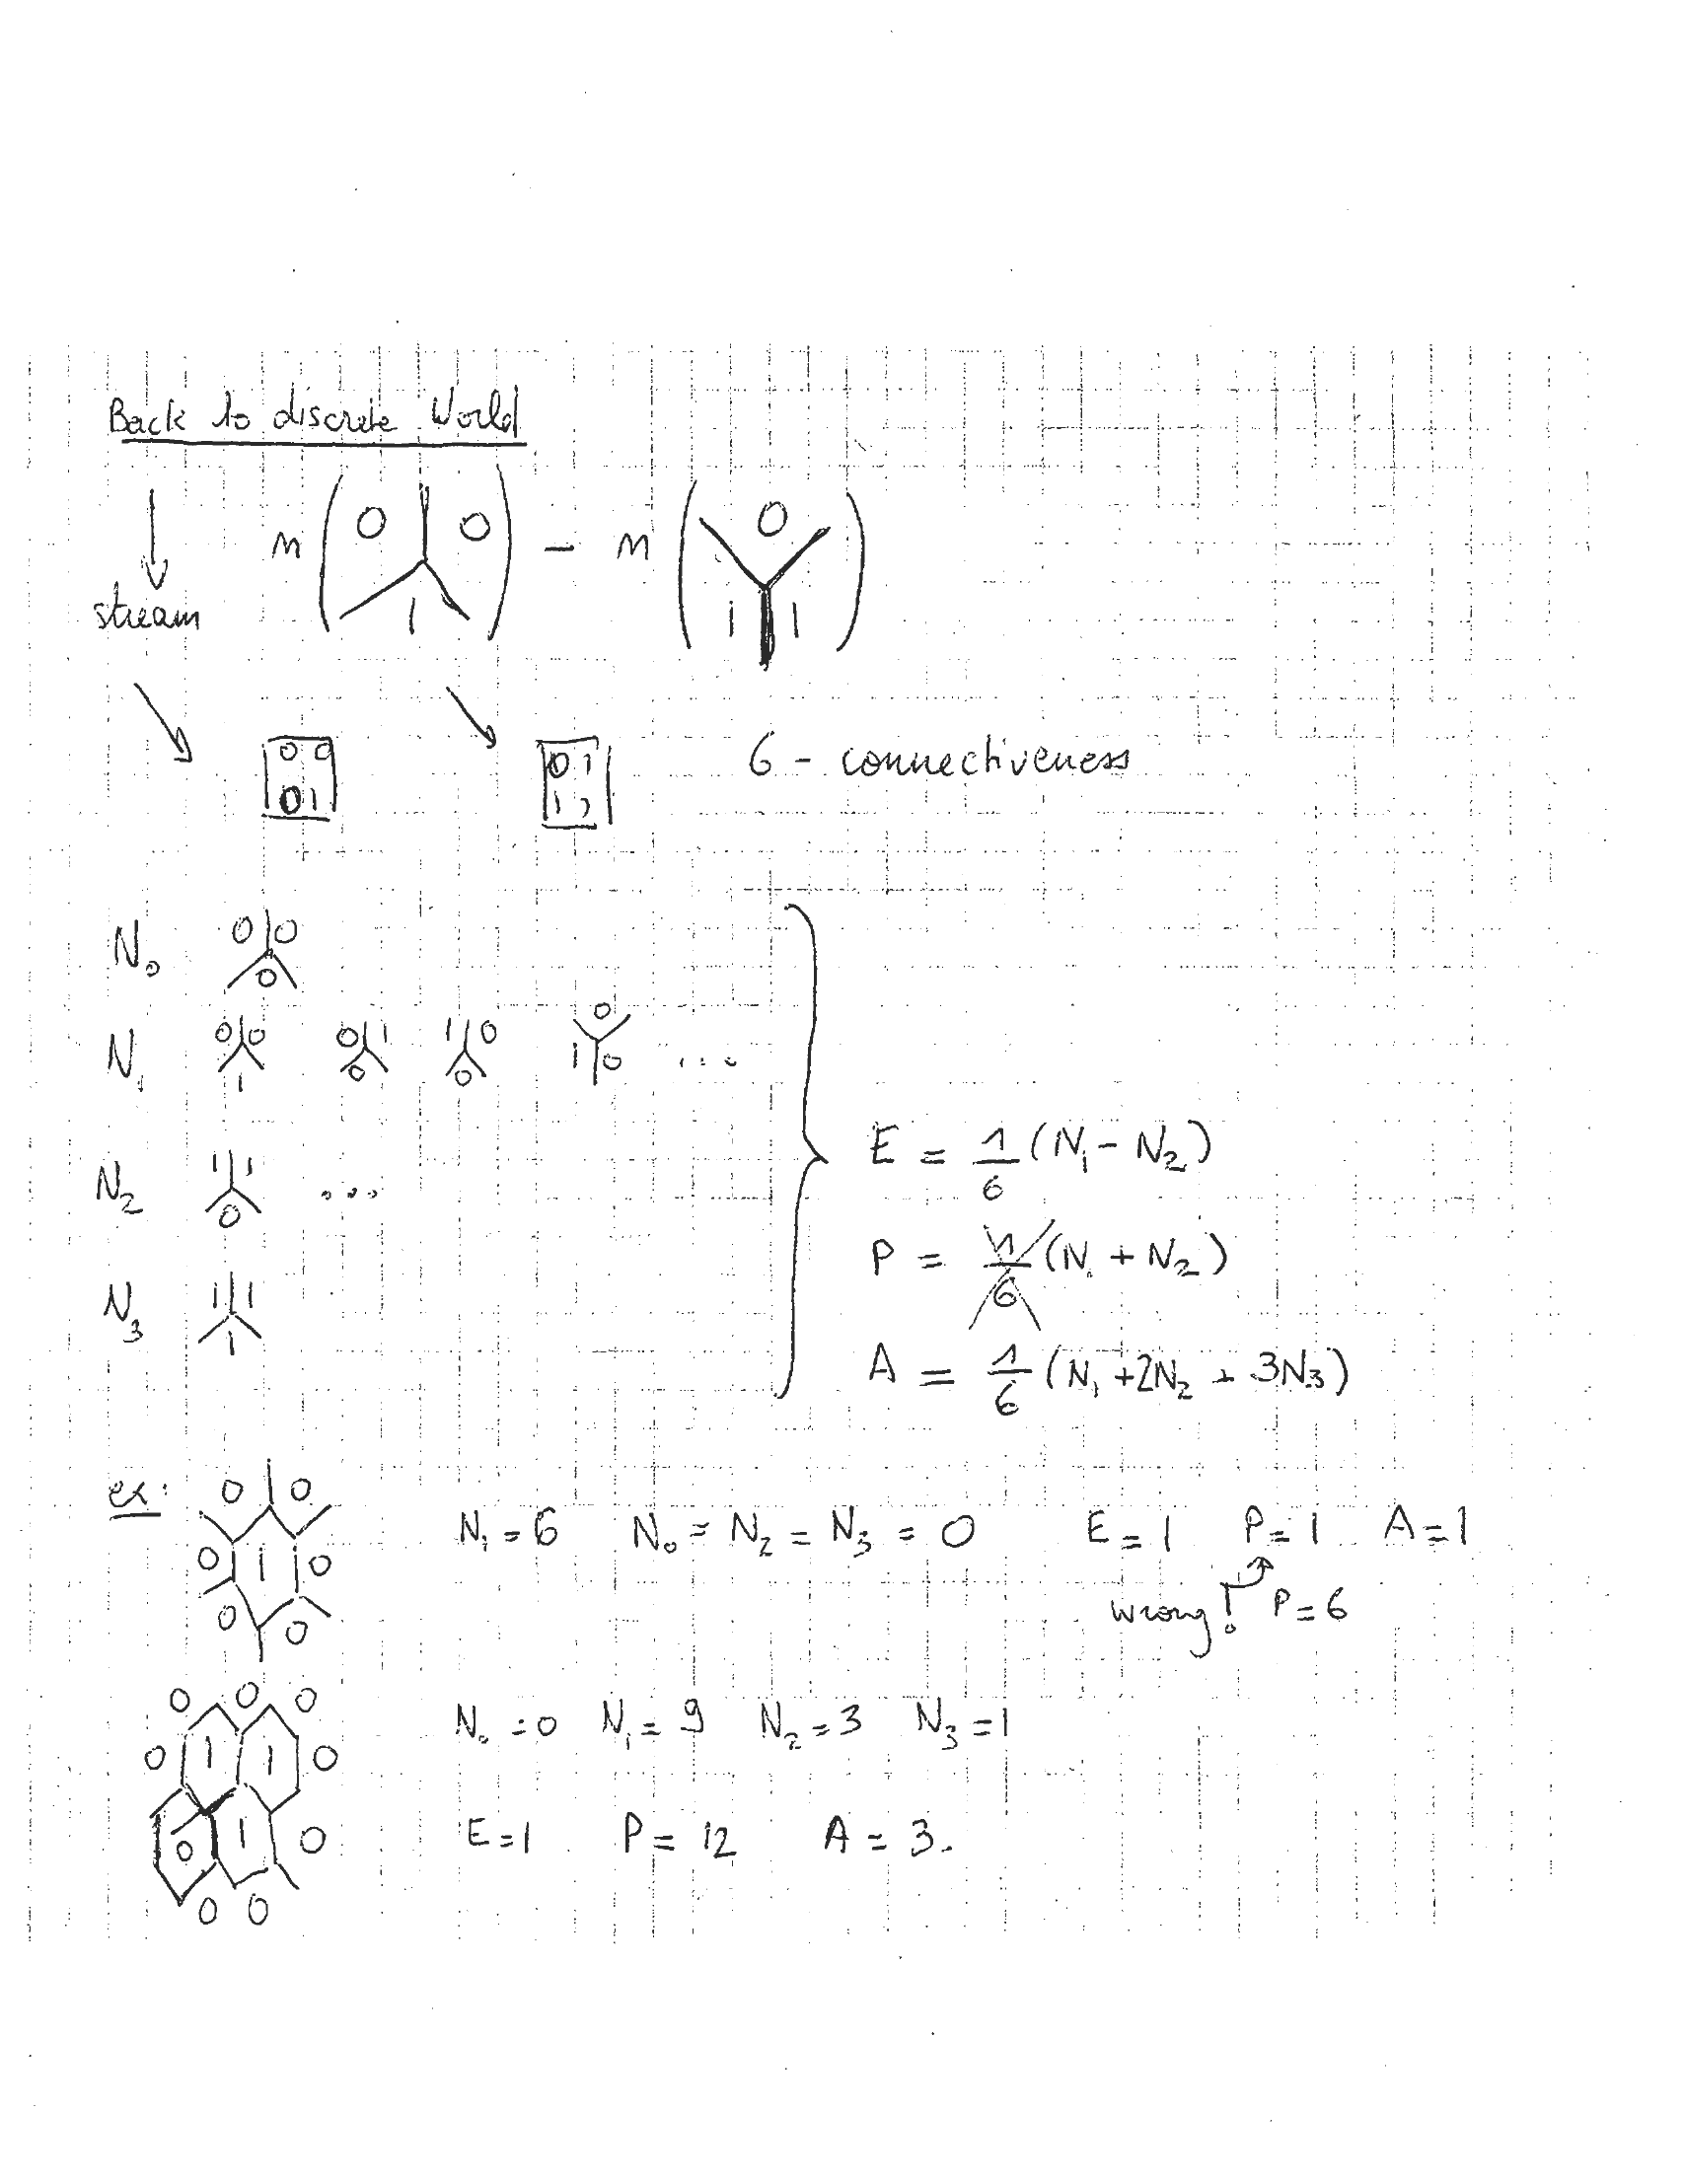 Back to discrete World
n ( 0 0 1 ) - n ( 0 1 1 )
stream
0 0 0 1
0 1 1 ? 6 - connectiveness
N₀ 0 0 0
N₁ 0 0 1 0 1 0 1 0 0 0 1 0 ...
N₂ 1 1 0 ...
N₃ 1 1 1
E = 1/6 (N₁ - N₂)
P = 1/6 (N₁ + N₂)
A = 1/6 (N₁ + 2N₂ + 3N₃)
ex: 0 0 0 1 0 0 0
N₁ = 6 N₀ = N₂ = N₃ = 0 E = 1 P = 1 A = 1
wrong! P = 6
0 0 0 0 1 1 0 0 1 0 0 0
N₀ = 0 N₁ = 9 N₂ = 3 N₃ = 1
E = 1 P = 12 A = 3.